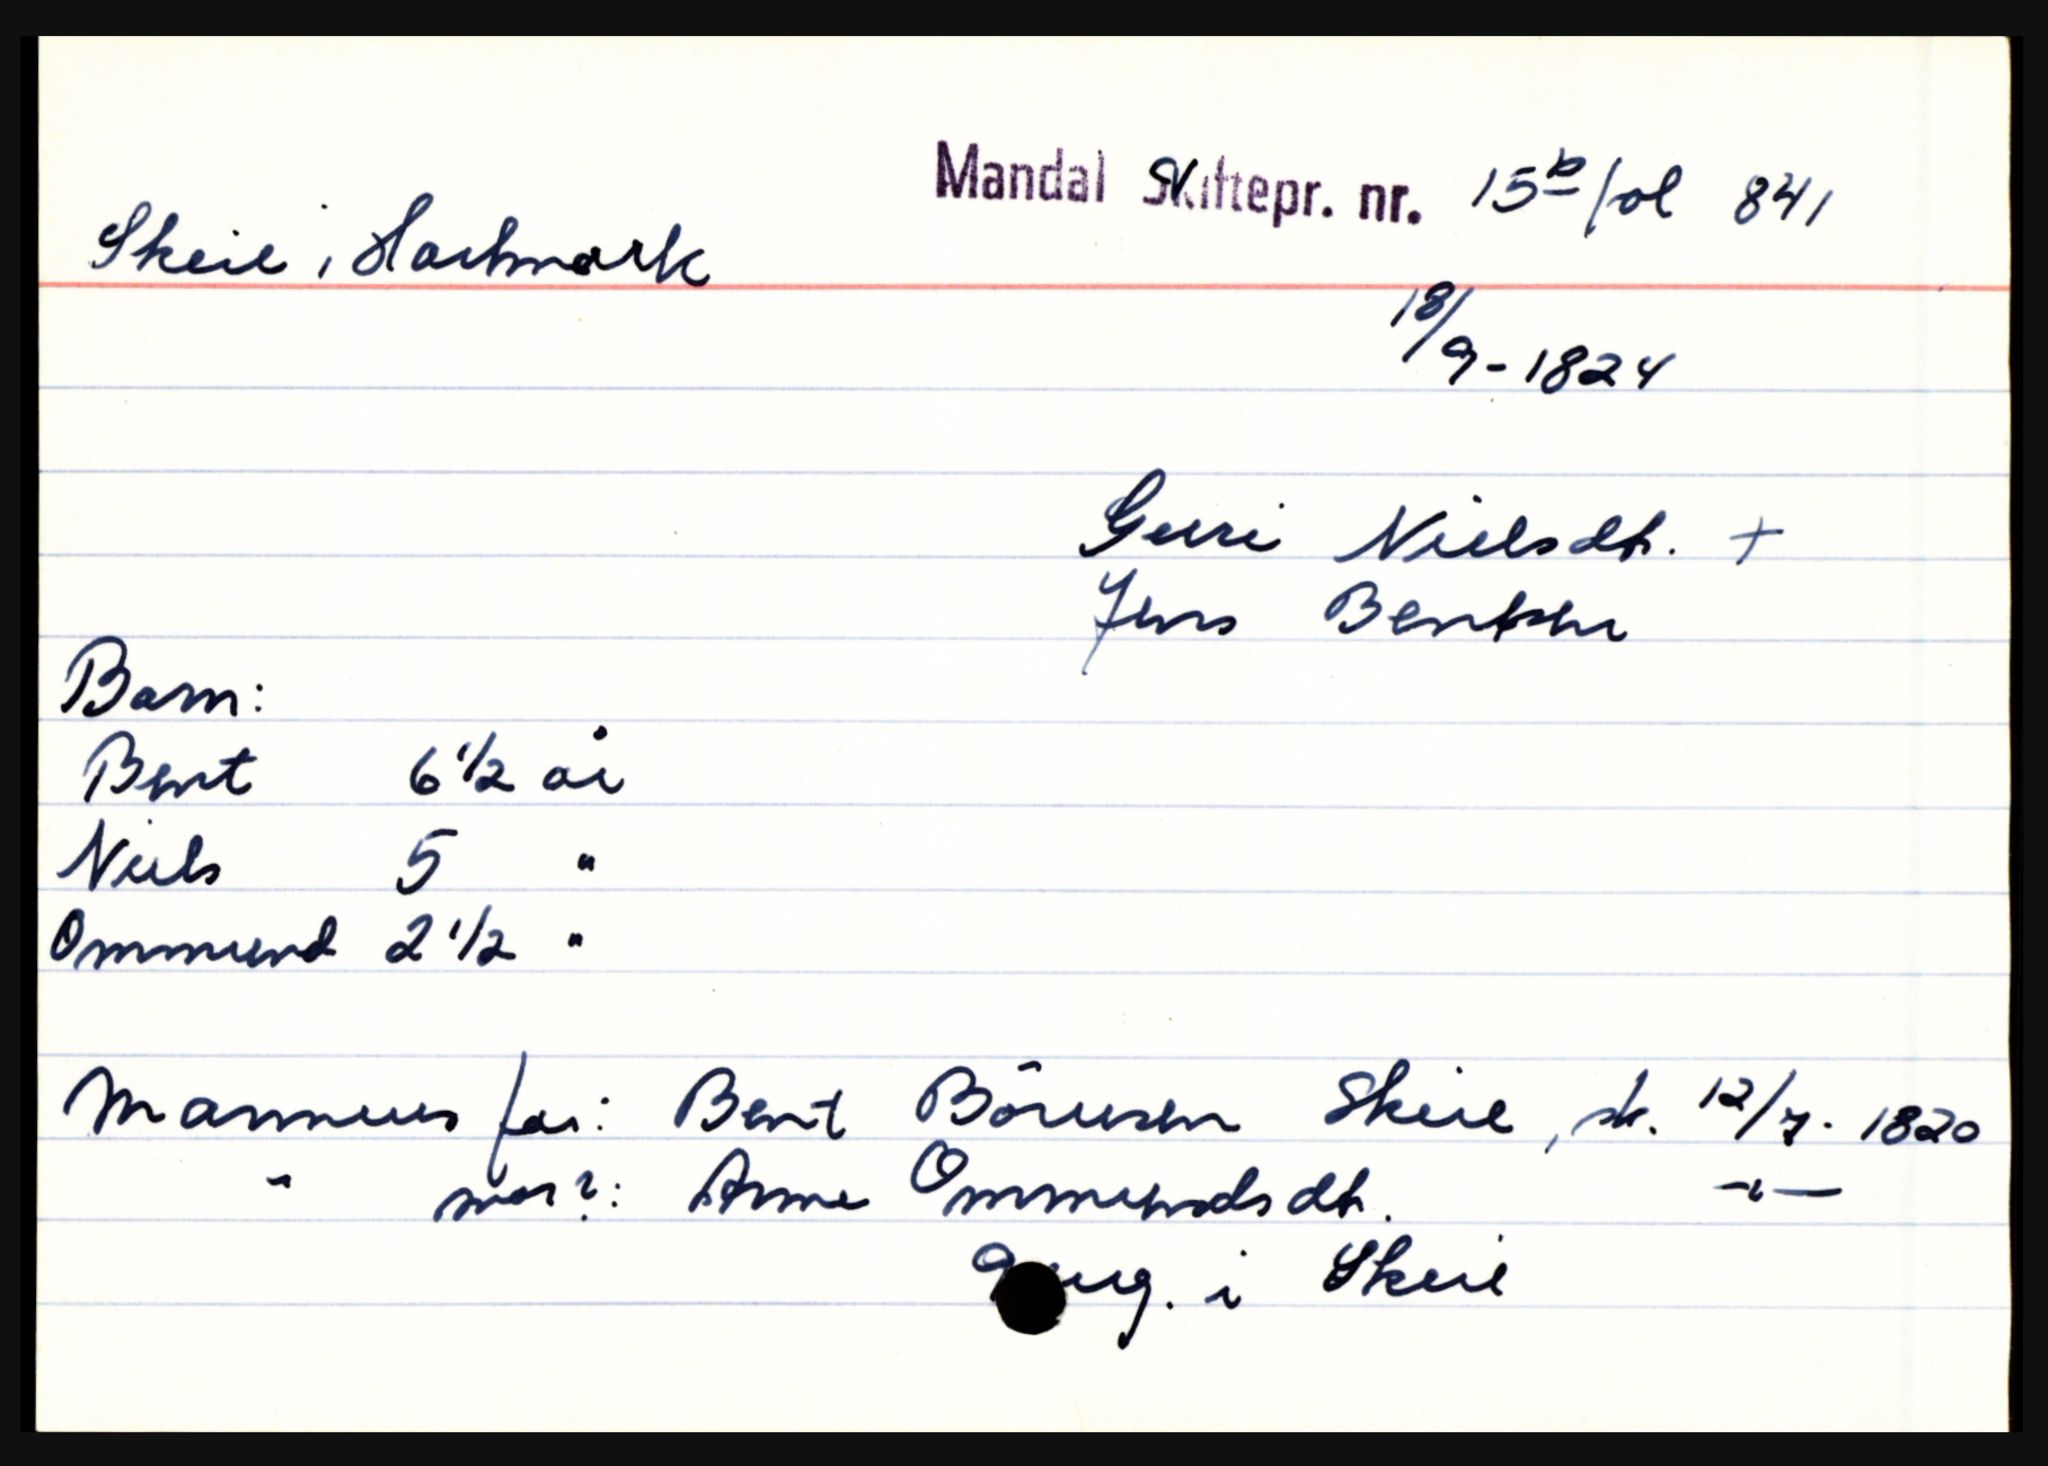 Mandal Skiftepr. nr. 15b fol 841
Skeie i Hartmark
18/9-1824
Guri Nielsdt. +
Jens Bentsen
Barn:
Bent 6 1/2 år
Niels 5 "
Ommund 2 1/2 "
Mannens far: Bent Börresen Skeie, sk. 12/7-1820
" mor?: Anne Ommundsdt. -"-
i Skeie